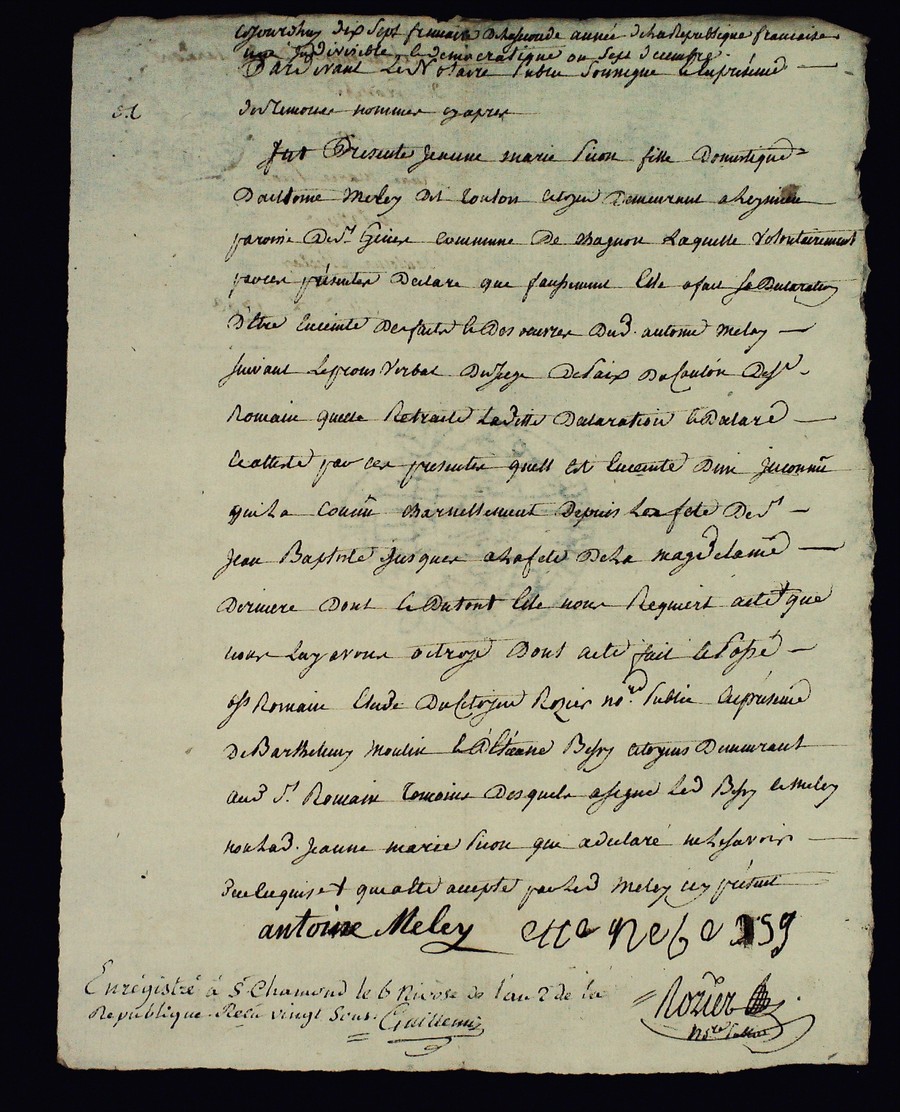 ce jourdhuy dix sept frimaire de la seconde année de la Republique francaise
une indivisible et democratique ou sept decembre
Pardevant Le Notaire Public soussigné et en présence
des temoins nommés cy apres
fut Presente Jeanne marie domestique
Dantoine Meley dit citoyen Demeurant a
paroisse De St Genis commune De Laquelle volontairement
par ces présentes Declare que faussement Elle a fait sa Declaration
D'être Enceinte Des faits et Des oeuvres Dud. antoine Meley
suivant Le proces Verbal Du Juge De Paix Du Canton De St
Romain quelle Retracte Laditte Declaration et Declare
et atteste par ces presentes quelle Est Enceinte D'un Inconnu
qui La Connu Charnellement Depuis La fete De St
Jean Baptiste Jusques a La fete De La magdelaine
Derniere Dont et Du tout Elle nous Requiert acte + que
nous Luy avons octroyé Dont acte fait et Passé
a St Romain Etude Du Citoyen Rozier nore Public En présence
De Barthelemy Moulin et D'Etienne Bessy citoyens Demeurant
aud St Romain Temoins Desquels a signé Led Bessy et Meley
non Lad. Jeanne marie que a declaré ne Le savoir
De ce Enquise + quelle accepte par Led Meley icy présent
antoine Meley
Rozier
nore Public
Enrégistré à St Chamond le 6 Nivose de l'an 2 de la
Republique. Recu vingt Sous. Guillemin